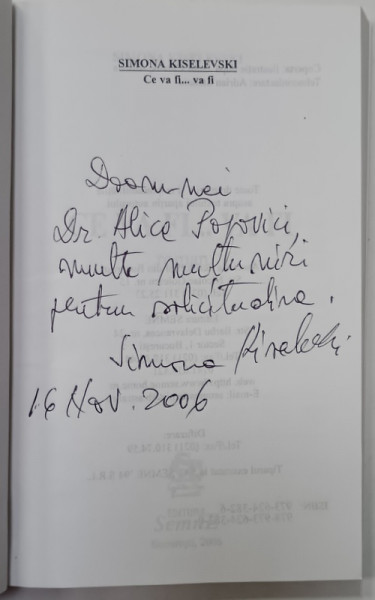 SIMONA KISELEVSKI
Ce va fi... va fi
Doamnei
Dr. Alice Popovici,
multe mulțumiri
pentru solicitudine.
Simona Kiselevski
16 Nov. 2006